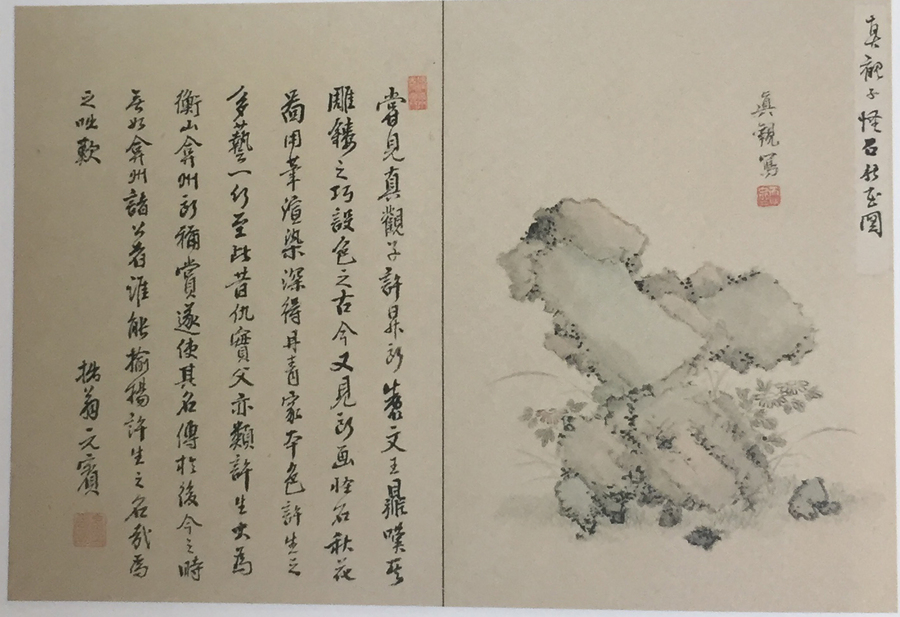 真觀子怪石秋花圖
真觀寫
嘗見真觀子許昇所文王鼎嘆其
雕鏤之巧設色之古今又見所画怪石秋花
啚用筆渲染深得丹青家本色許生之
多藝一何至此昔仇實父亦類許生大為
衡山弇州所稱賞遂使其名傳於後今之時
無如弇州諸公者誰能揄揚許生之名哉為
之咄歎
拙翁元賓